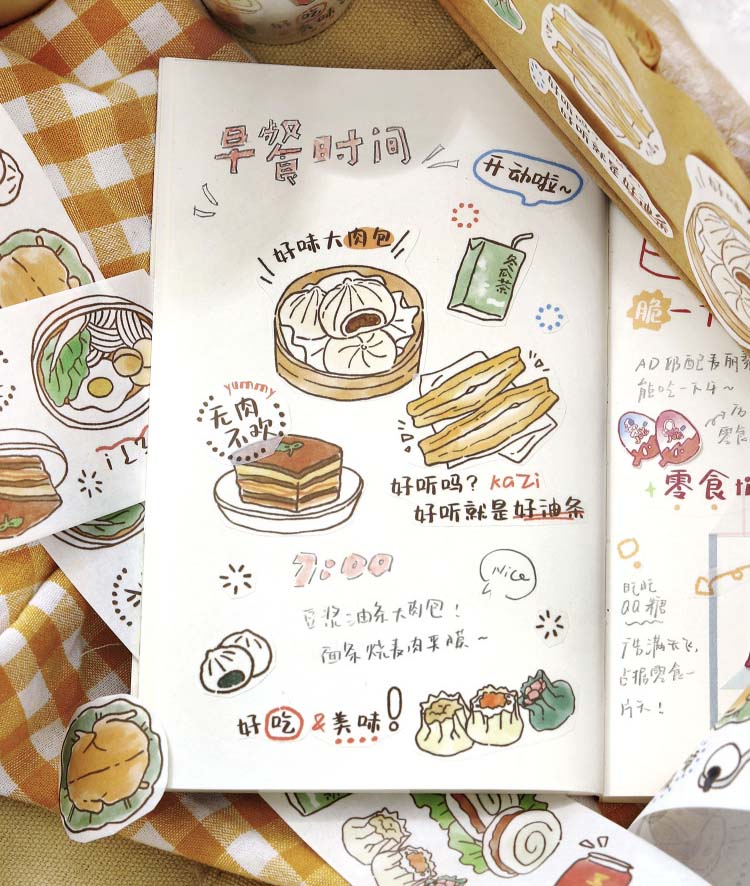 早餐时间
开动啦~
好味大肉包
冬瓜茶
yummy
无肉
不欢
好听吗? KaZi
好听就是好油条
7:00
Nice
豆浆油条大肉包!
面条烧麦肉夹膜~
好吃&美味!
好听就是好油条
脆一
能吃一下午~
零食
吃吃
QQ糖
片天!